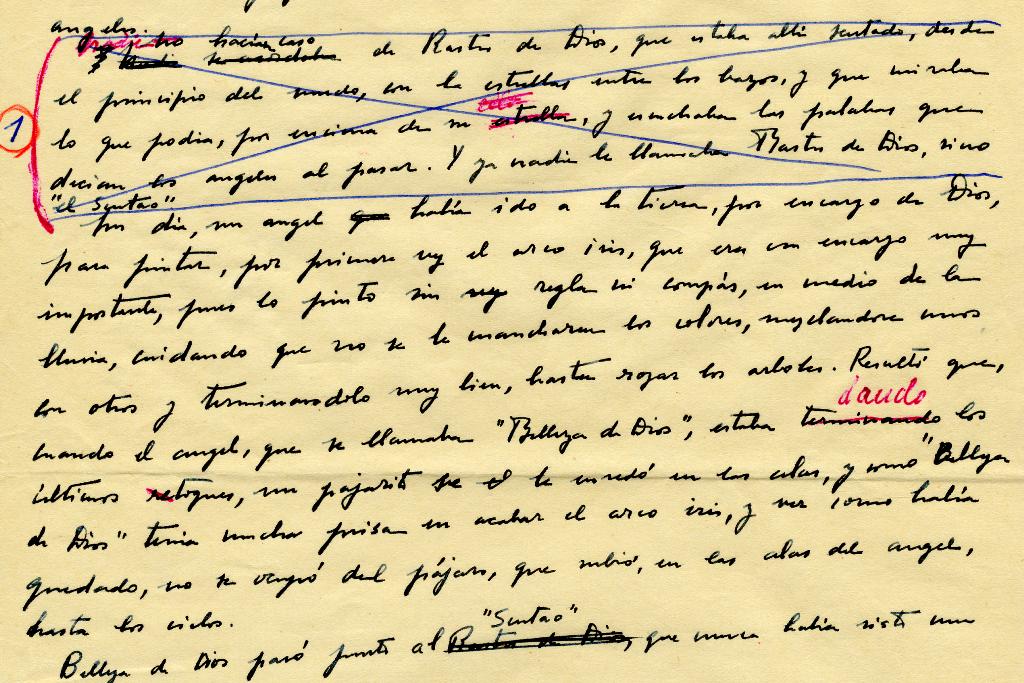 angeles.
nadie hacia caso de Rastro de Dios, que estaba allí sentado, desde
el principio del mundo, con la estrellas entre los brazos, y que miraba
1
lo que podia, por encima de su estrella, y escuchaba las palabras que
decian los angeles al pasar. Y ya nadie le llamaba Rastro de Dios, sino
"el Sentao"
Un dia, un angel había ido a la tierra, por encargo de Dios,
para pintar, por primera vez el arco iris, que era un encargo muy
importante, pues lo pinto sin regla ni compás, en medio de la
lluvia, cuidando que no se le mancharan los colores, mezclandose unos
con otros y terminandolo muy bien, hasta rozar los arboles. Resultó que,
dando
cuando el angel, que se llamaba "Belleza de Dios", estaba terminando los
últimos retoques, un pajarito se le enredó en las alas, y como "Belleza
de Dios" tenia mucha prisa en acabar el arco iris, y ver como había
quedado, no se ocupó del pájaro, que subió, en las alas del angel,
hasta los cielos.
"Sentao"
Belleza de Dios paró junto al Rastro de Dios, que nunca había visto un